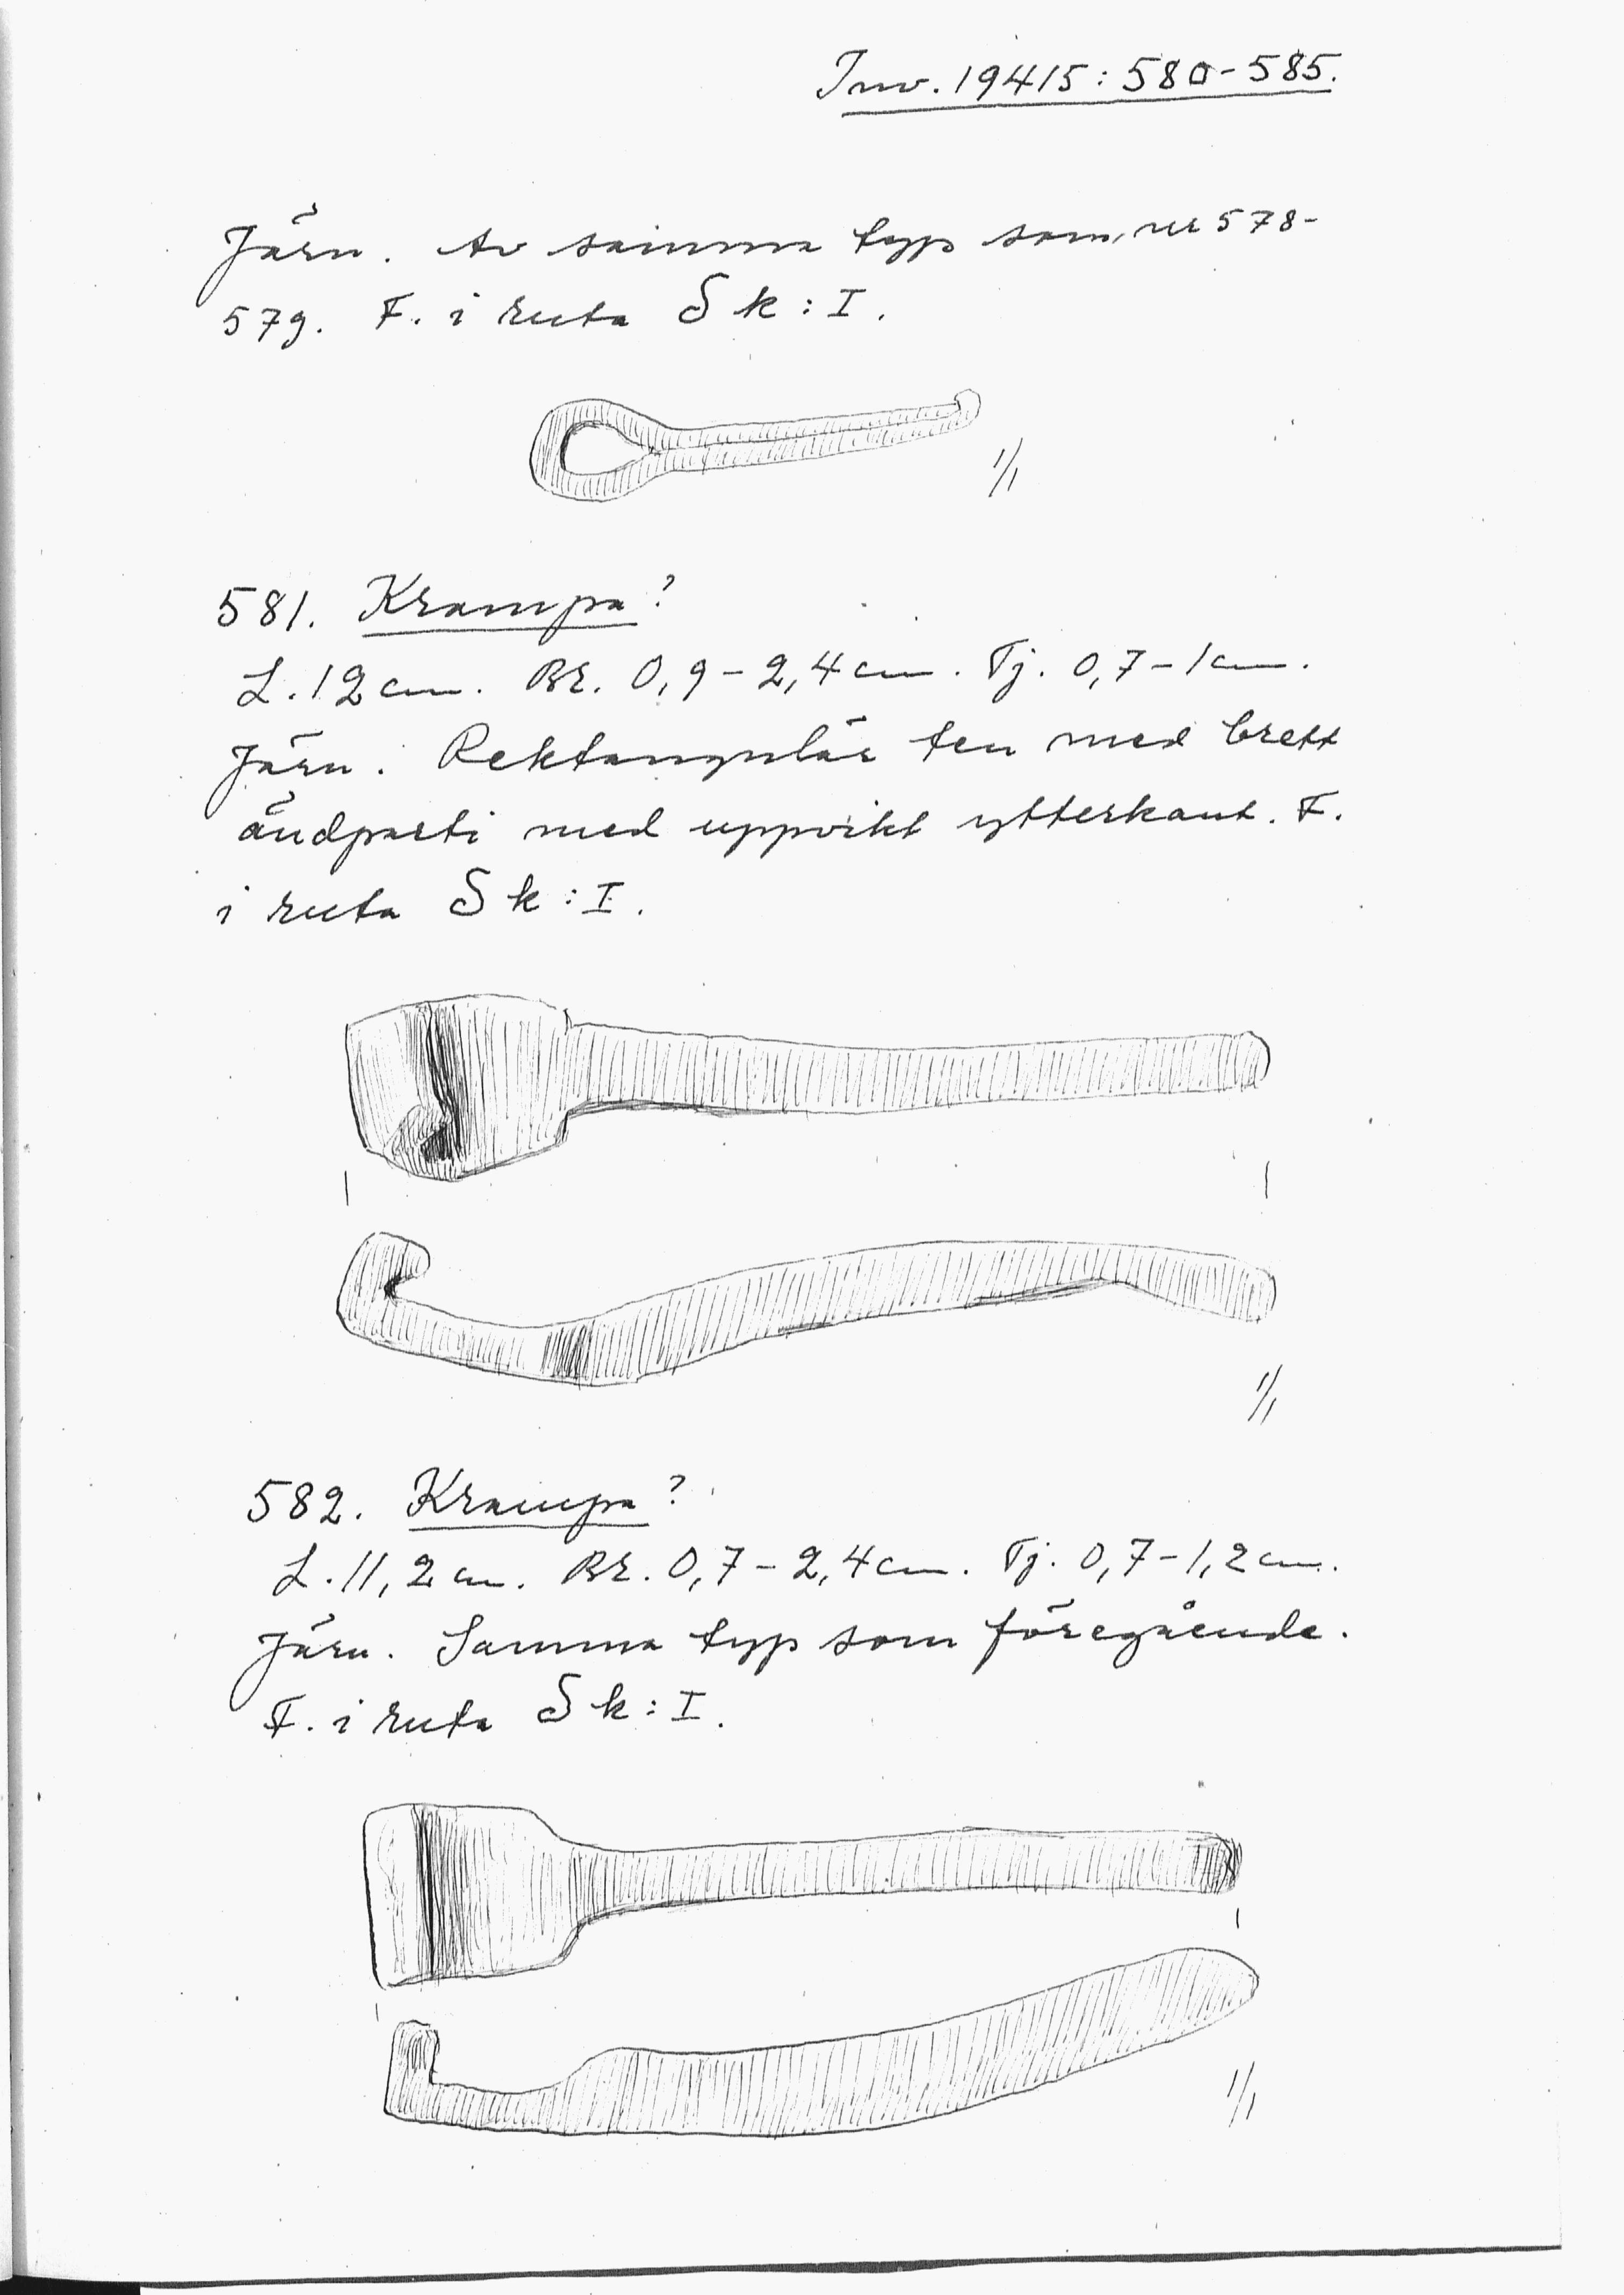 Inv. 19415: 580-585.
Järn. Av samma typ som nr 578-
579. F. i ruta Sk: I.
1/1
581. Krampa?
L. 12 cm. Br. 0,9-2,4 cm. Tj. 0,7-1 cm.
Järn. Rektangulär ten med brett
ändparti med uppvikt ytterkant. F.
i ruta Sk: I.
1/1
582. Krampa?
L. 11,2 cm. Br. 0,7-2,4 cm. Tj. 0,7-1,2 cm.
Järn. Samma typ som föregående.
F. i ruta Sk: I.
1/1